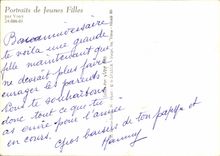 Portraits de Jeunes Filles
par Ynes
Bon anniversaire
te voilà une grande
fille maintenant qui
ne devrait plus faire
enrager les parents
Nous te souhaitons
donc tout ce que tu
as envie pour l'année
en cours. Gros baisers de ton papa et